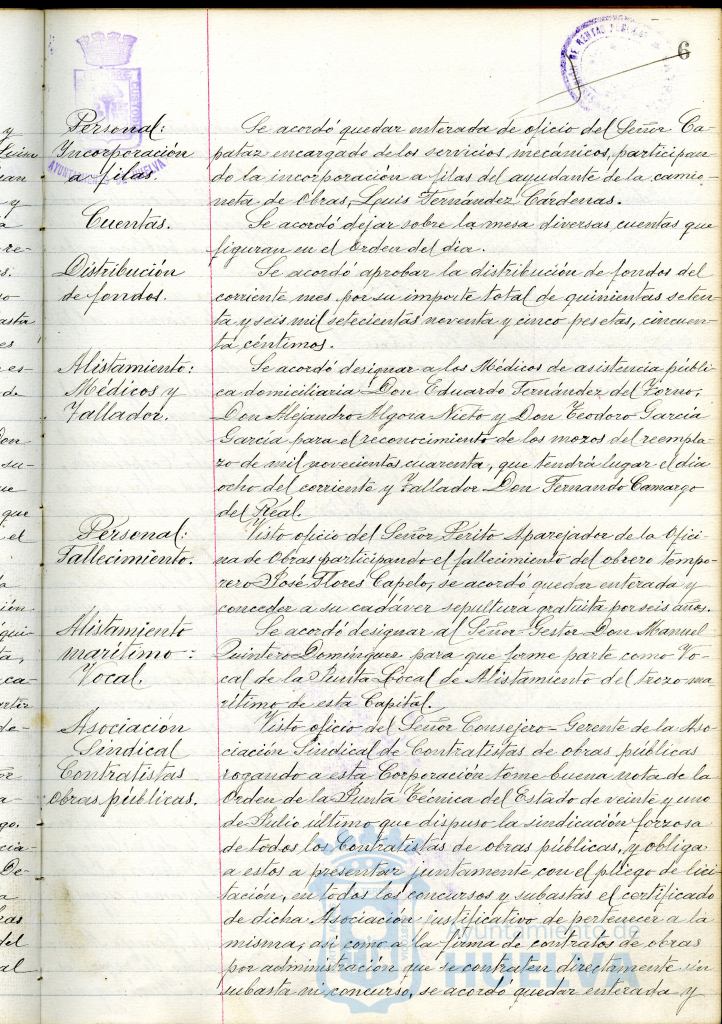 6
Personal:
Incorporación
a filas
Se acordó quedar enterada de oficio del Señor Ca-
pataz encargado de los servicios mecánicos, participan-
do la incorporación a filas del ayudante de la camio-
neta de Obras, Luis Fernández Cárdenas.
Cuentas.
Se acordó dejar sobre la mesa diversas cuentas que
figuran en el Orden del dia.
Distribución
de fondos.
Se acordó aprobar la distribución de fondos del
corriente mes por su importe total de quinientas seten-
ta y seis mil setecientas noventa y cinco pesetas, cincuen-
ta céntimos.
Alistamiento:
Médicos y
Tallador.
Se acordó designar a los Médicos de asistencia públi-
ca domiciliaria Don Eduardo Fernández del Torno,
Don Alejandro Algora Nieto y Don Teodoro García
García para el reconocimiento de los mozos del reempla-
zo de mil novecientos cuarenta, que tendrá lugar el dia
ocho del corriente y Tallador Don Fernando Camargo
del Real
Personal:
Fallecimiento.
Visto oficio del Señor Perito Aparejador de la Ofici-
na de Obras participando el fallecimiento del obrero tempo-
rero José Flores Capelo, se acordó quedar enterada y
conceder a su cadáver sepultura gratuita por seis años.
Alistamiento
marítimo:
Vocal.
Se acordó designar al Señor Gestor Don Manuel
Quintero Domínguez para que forme parte como Vo-
cal de la Junta Local de Alistamiento del trozo ma-
rítimo de esta Capital.
Asociación
Sindical
Contratistas
obras públicas.
Visto oficio del Señor Consejero-Gerente de la Aso-
ciación Sindical de Contratistas de obras públicas
rogando a esta Corporación tome buena nota de la
Orden de la Junta Técnica del Estado de veinte y uno
de Julio último que dispuso la sindicación forzosa
de todos los Contratistas de obras públicas, y obliga
a estos a presentar juntamente con el pliego de lici-
tación, en todos los concursos y subastas el certificado
de dicha Asociación justificativo de pertenecer a la
misma, asi como a la firma de contratos de obras
por administración que se contraten directamente sin
subasta ni concurso, se acordó quedar enterada y
AYUNTAMIENTO DE HUELVA
Ayuntamiento de
HUELVA